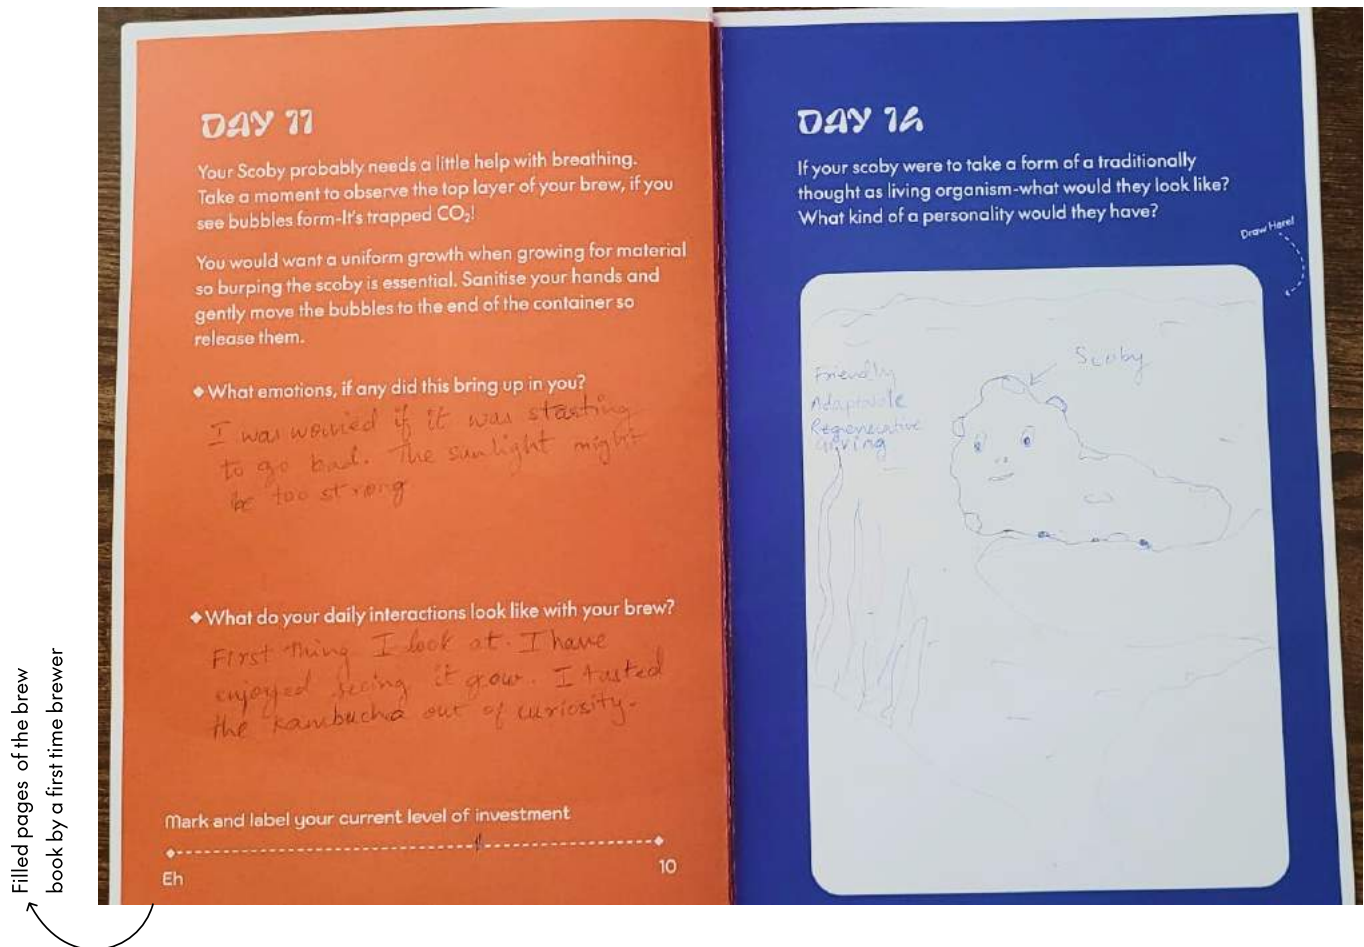 DAY 11
Your Scoby probably needs a little help with breathing.
Take a moment to observe the top layer of your brew, if you
see bubbles form-It's trapped CO₂!
You would want a uniform growth when growing for material
so burping the scoby is essential. Sanitise your hands and
gently move the bubbles to the end of the container so
release them.
◆ What emotions, if any did this bring up in you?
I was worried if it was starting
to go bad. The sunlight might
be too strong
◆ What do your daily interactions look like with your brew?
First thing I look at. I have
enjoyed seeing it grow. I tasted
the kambucha out of curiosity.
Mark and label your current level of investment
Eh
10
DAY 14
If your scoby were to take a form of a traditionally
thought as living organism-what would they look like?
What kind of a personality would they have?
Draw Here!
Scoby
Friendly
Adaptable
Regenerative
Giving
Filled pages of the brew
book by a first time brewer